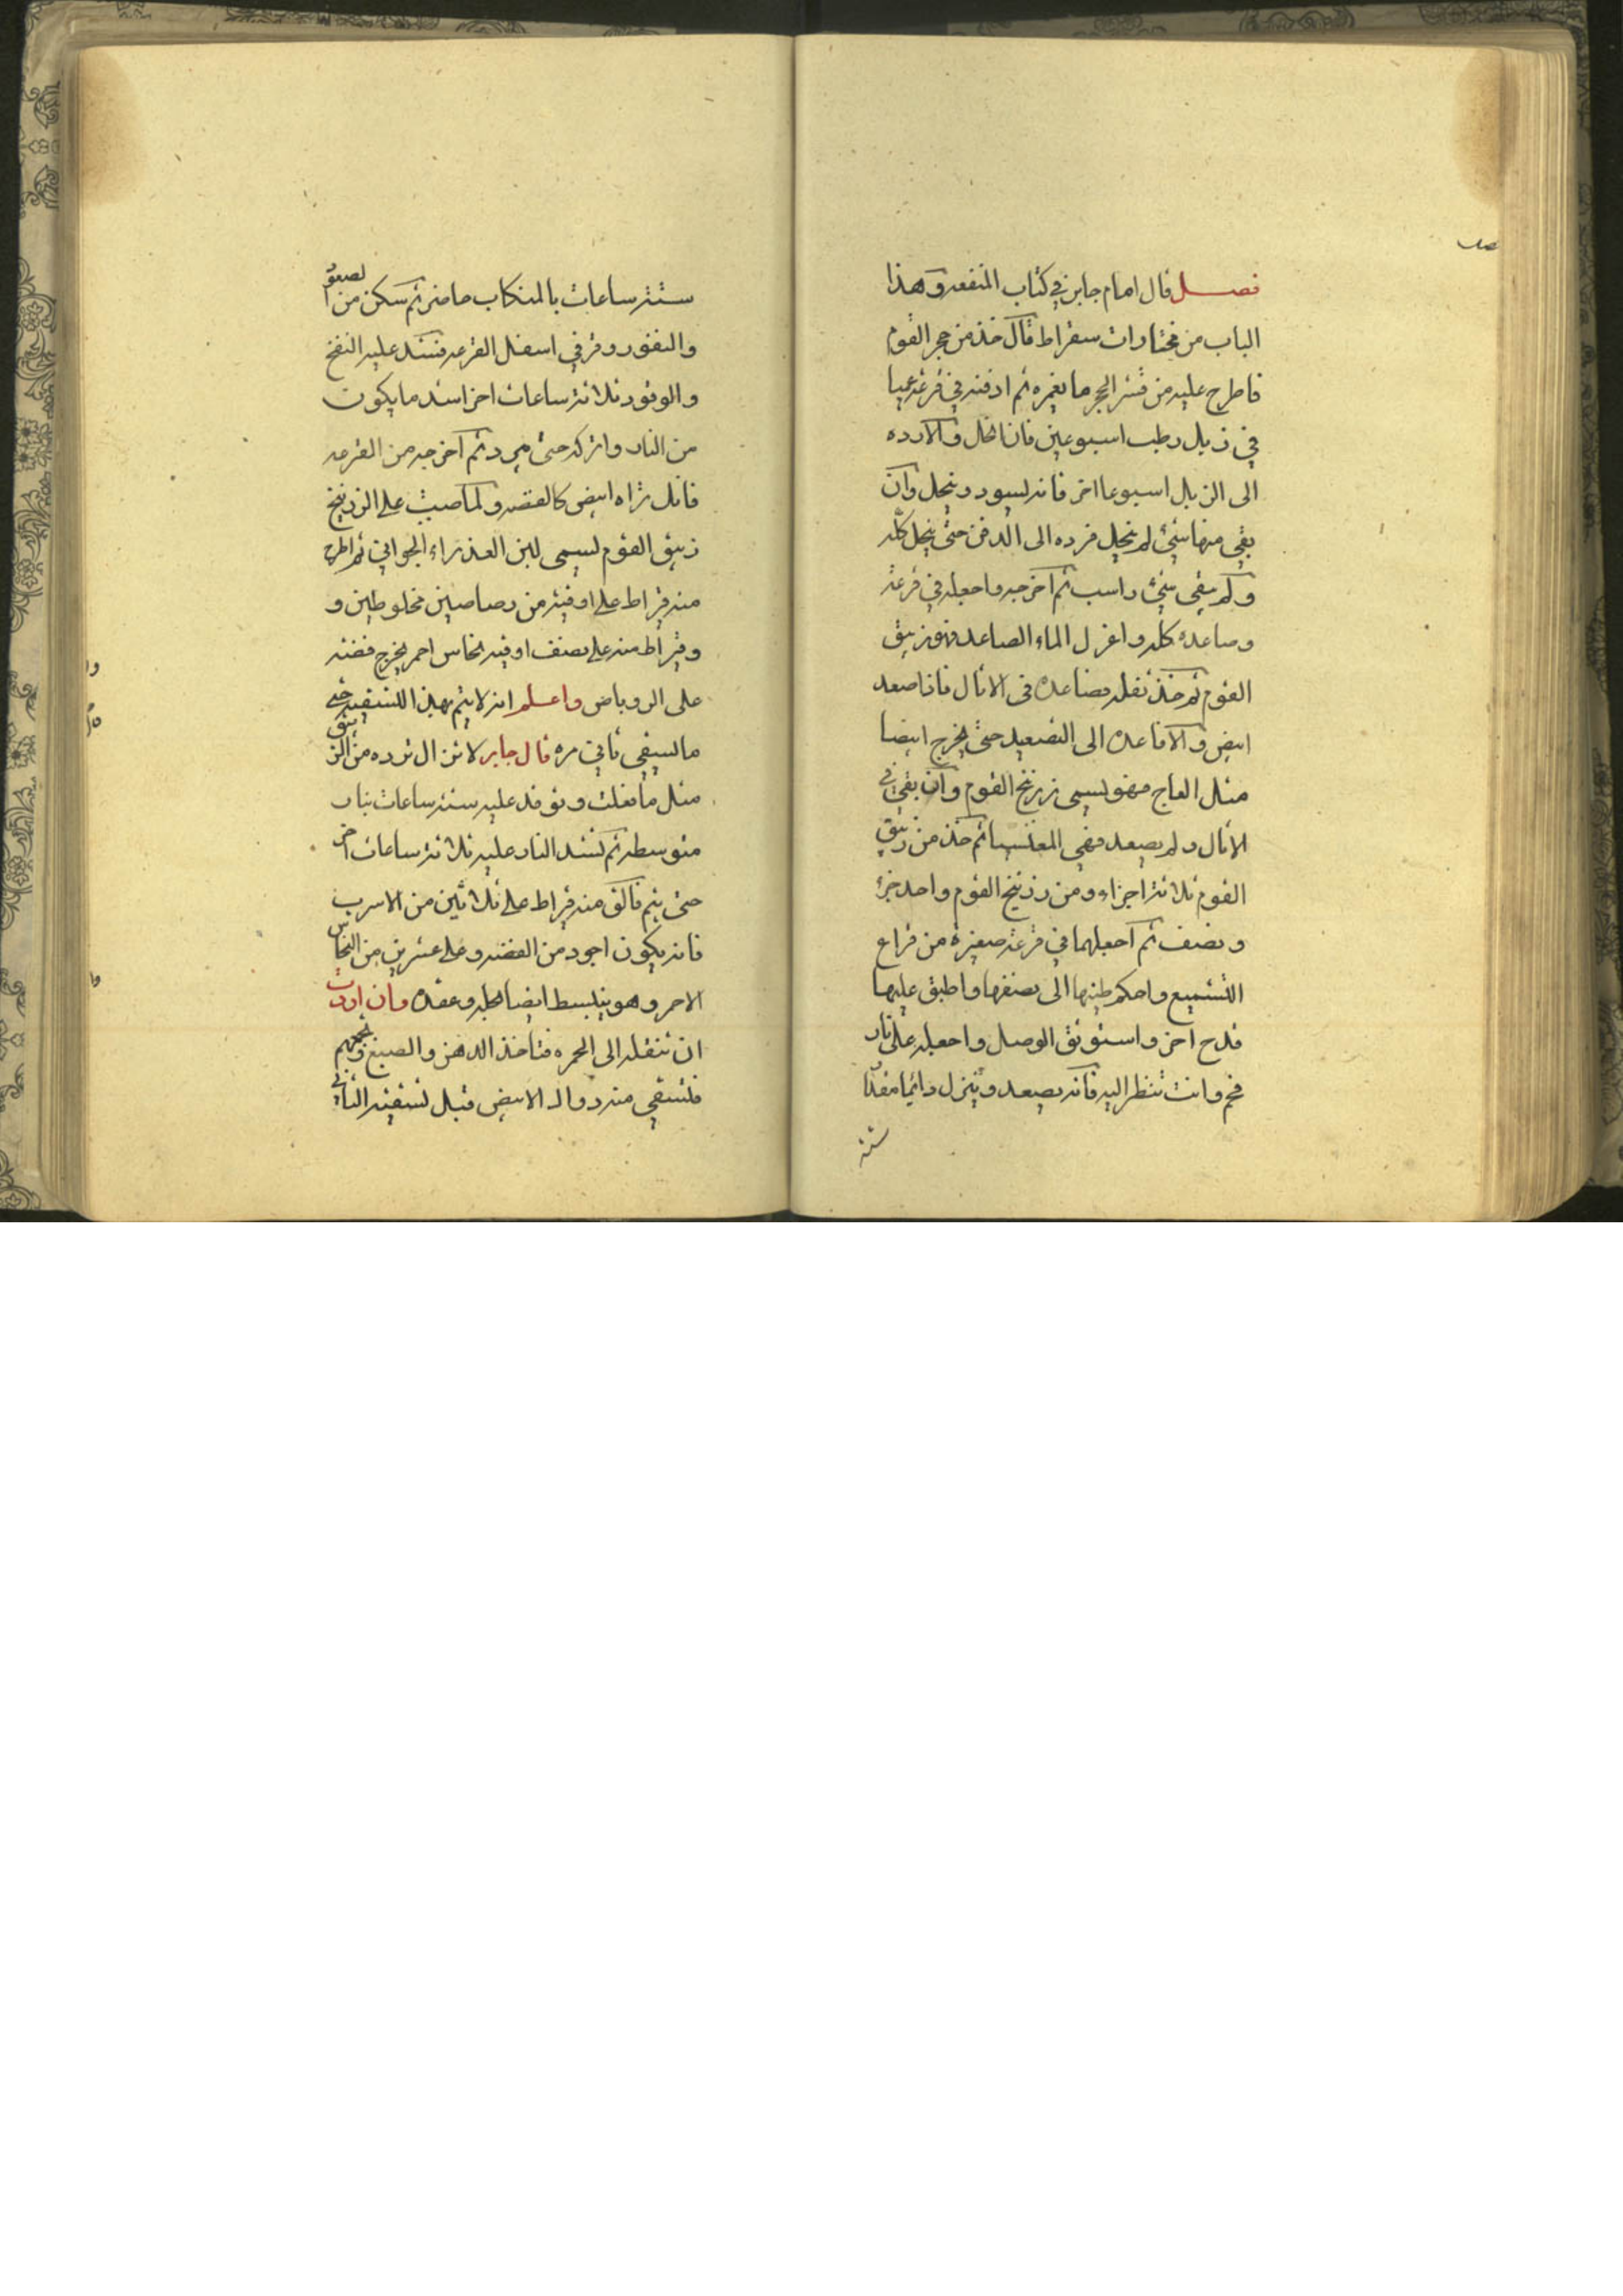 فصل قال امام جابر في كتاب المنفعه وهذا
الباب من مختارات سقراط قال خذ من حجر القوم
فاطرح عليه من قشر الحجر ما يغمره ثم ادفنه في قرعة عميا
في زبل رطب اسبوعين فان انحل والا رده
الى الزبل اسبوعا اخر فانه يسود وينحل وان
بقي منها شيئ لم ينحل فرده الى الدفن حتى ينحل كله
ولم يبقى شيئ راسب ثم اخرجه واجعله في قرعة
وصاعده كله واعزل الماء الصاعد فهو زيبق
القوم ثم خذ ثفله فصاعده في الاثال فاذا صعد
ابيض والا فاعده الى التصعيد حتى يخرج ابيضا
مثل العاج فهو يسمى زرنيخ القوم وان بقي في
الاثال ولم يصعد فهي المغنسيا ثم خذ من زيبق
القوم ثلاثة اجزاء ومن زرنيخ القوم واحد جزء
ونصف ثم اجعلهما في قرعة صغيرة من قراع
التشميع واحكم طينها الى نصفها واطبق عليها
قدح اخر واستوثق الوصل واجعله على نار
فحم وانت تنظر اليه فانه يصعد وينزل دائما مقدا
ستة
ستة ساعات بالمنكاب ثم سكن من الصعو
والنفور وقر في اسفل القرعه فشد عليه النفخ
والوقود ثلاثة ساعات اخر اشد ما يكون
من النار واتركه حتى يبرد ثم اخرجه من القرعه
فانك تراه ابيض كالفضه ولما صبيت على الزرنيخ
زيبق القوم يسمى لبن العذراء الجواني ثم اطرح
منه قيراط على اوقية من رصاصين مخلوطين و
وقيراط منه على نصف اوقيه نحاس احمر يخرج فضه
على الروباص واعلم انه لا يتم بهذا التسقيه حتى
ما يسقي ثاني مره قال جابر لا تزال ترده من الزيبق
مثل ما فعلت وتوقد عليه ستة ساعات بنار
متوسطه ثم تشد النار عليه ثلاثة ساعات اخر
حتى يتم فالق منه قيراط على ثلاثين من الاسرب
فانه يكون اجود من الفضه وعلى عشرين من النحاس
الاحمر وهو ينبسط ايضا بحله وعقده وان اردت
ان تنقله الى الحمره فتاخذ الدهن والصبغ
فتسقي منه دوا الابيض قبل تسقيته الثاني